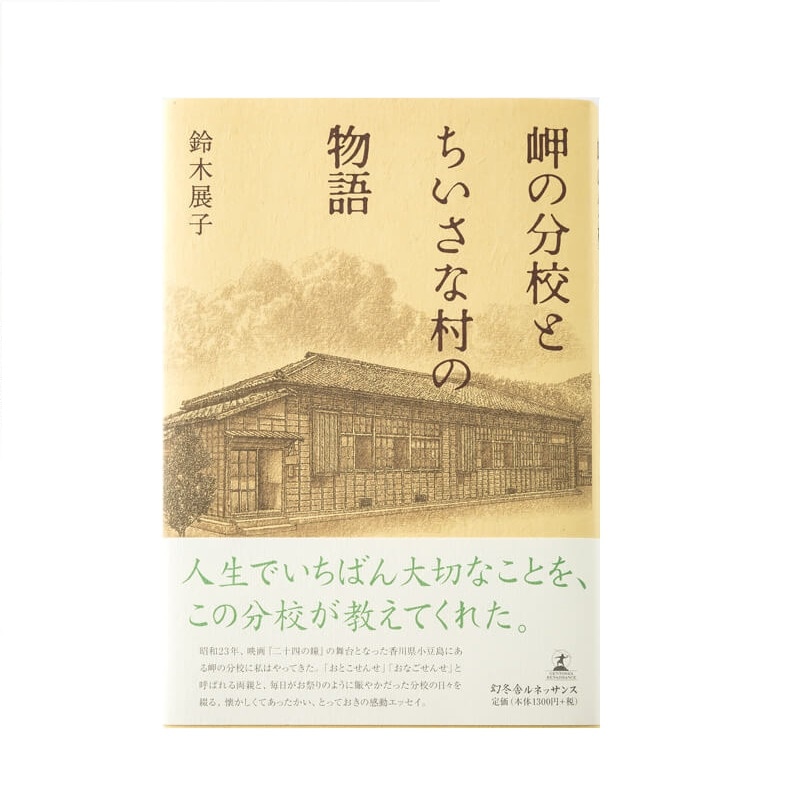 岬の分校と
ちいさな村の
物語
鈴木展子
人生でいちばん大切なことを、
この分校が教えてくれた。
昭和23年、映画『二十四の瞳』の舞台となった香川県小豆島に
ある岬の分校に私はやってきた。「おとこせんせ」「おなごせんせ」と
呼ばれる両親と、毎日がお祭りのように賑やかだった分校の日々を
綴る、懐かしくてあったかい、とっておきの感動エッセイ。
GENTOSHA
RENAISSANCE
幻冬舎ルネッサンス
定価(本体1300円+税)